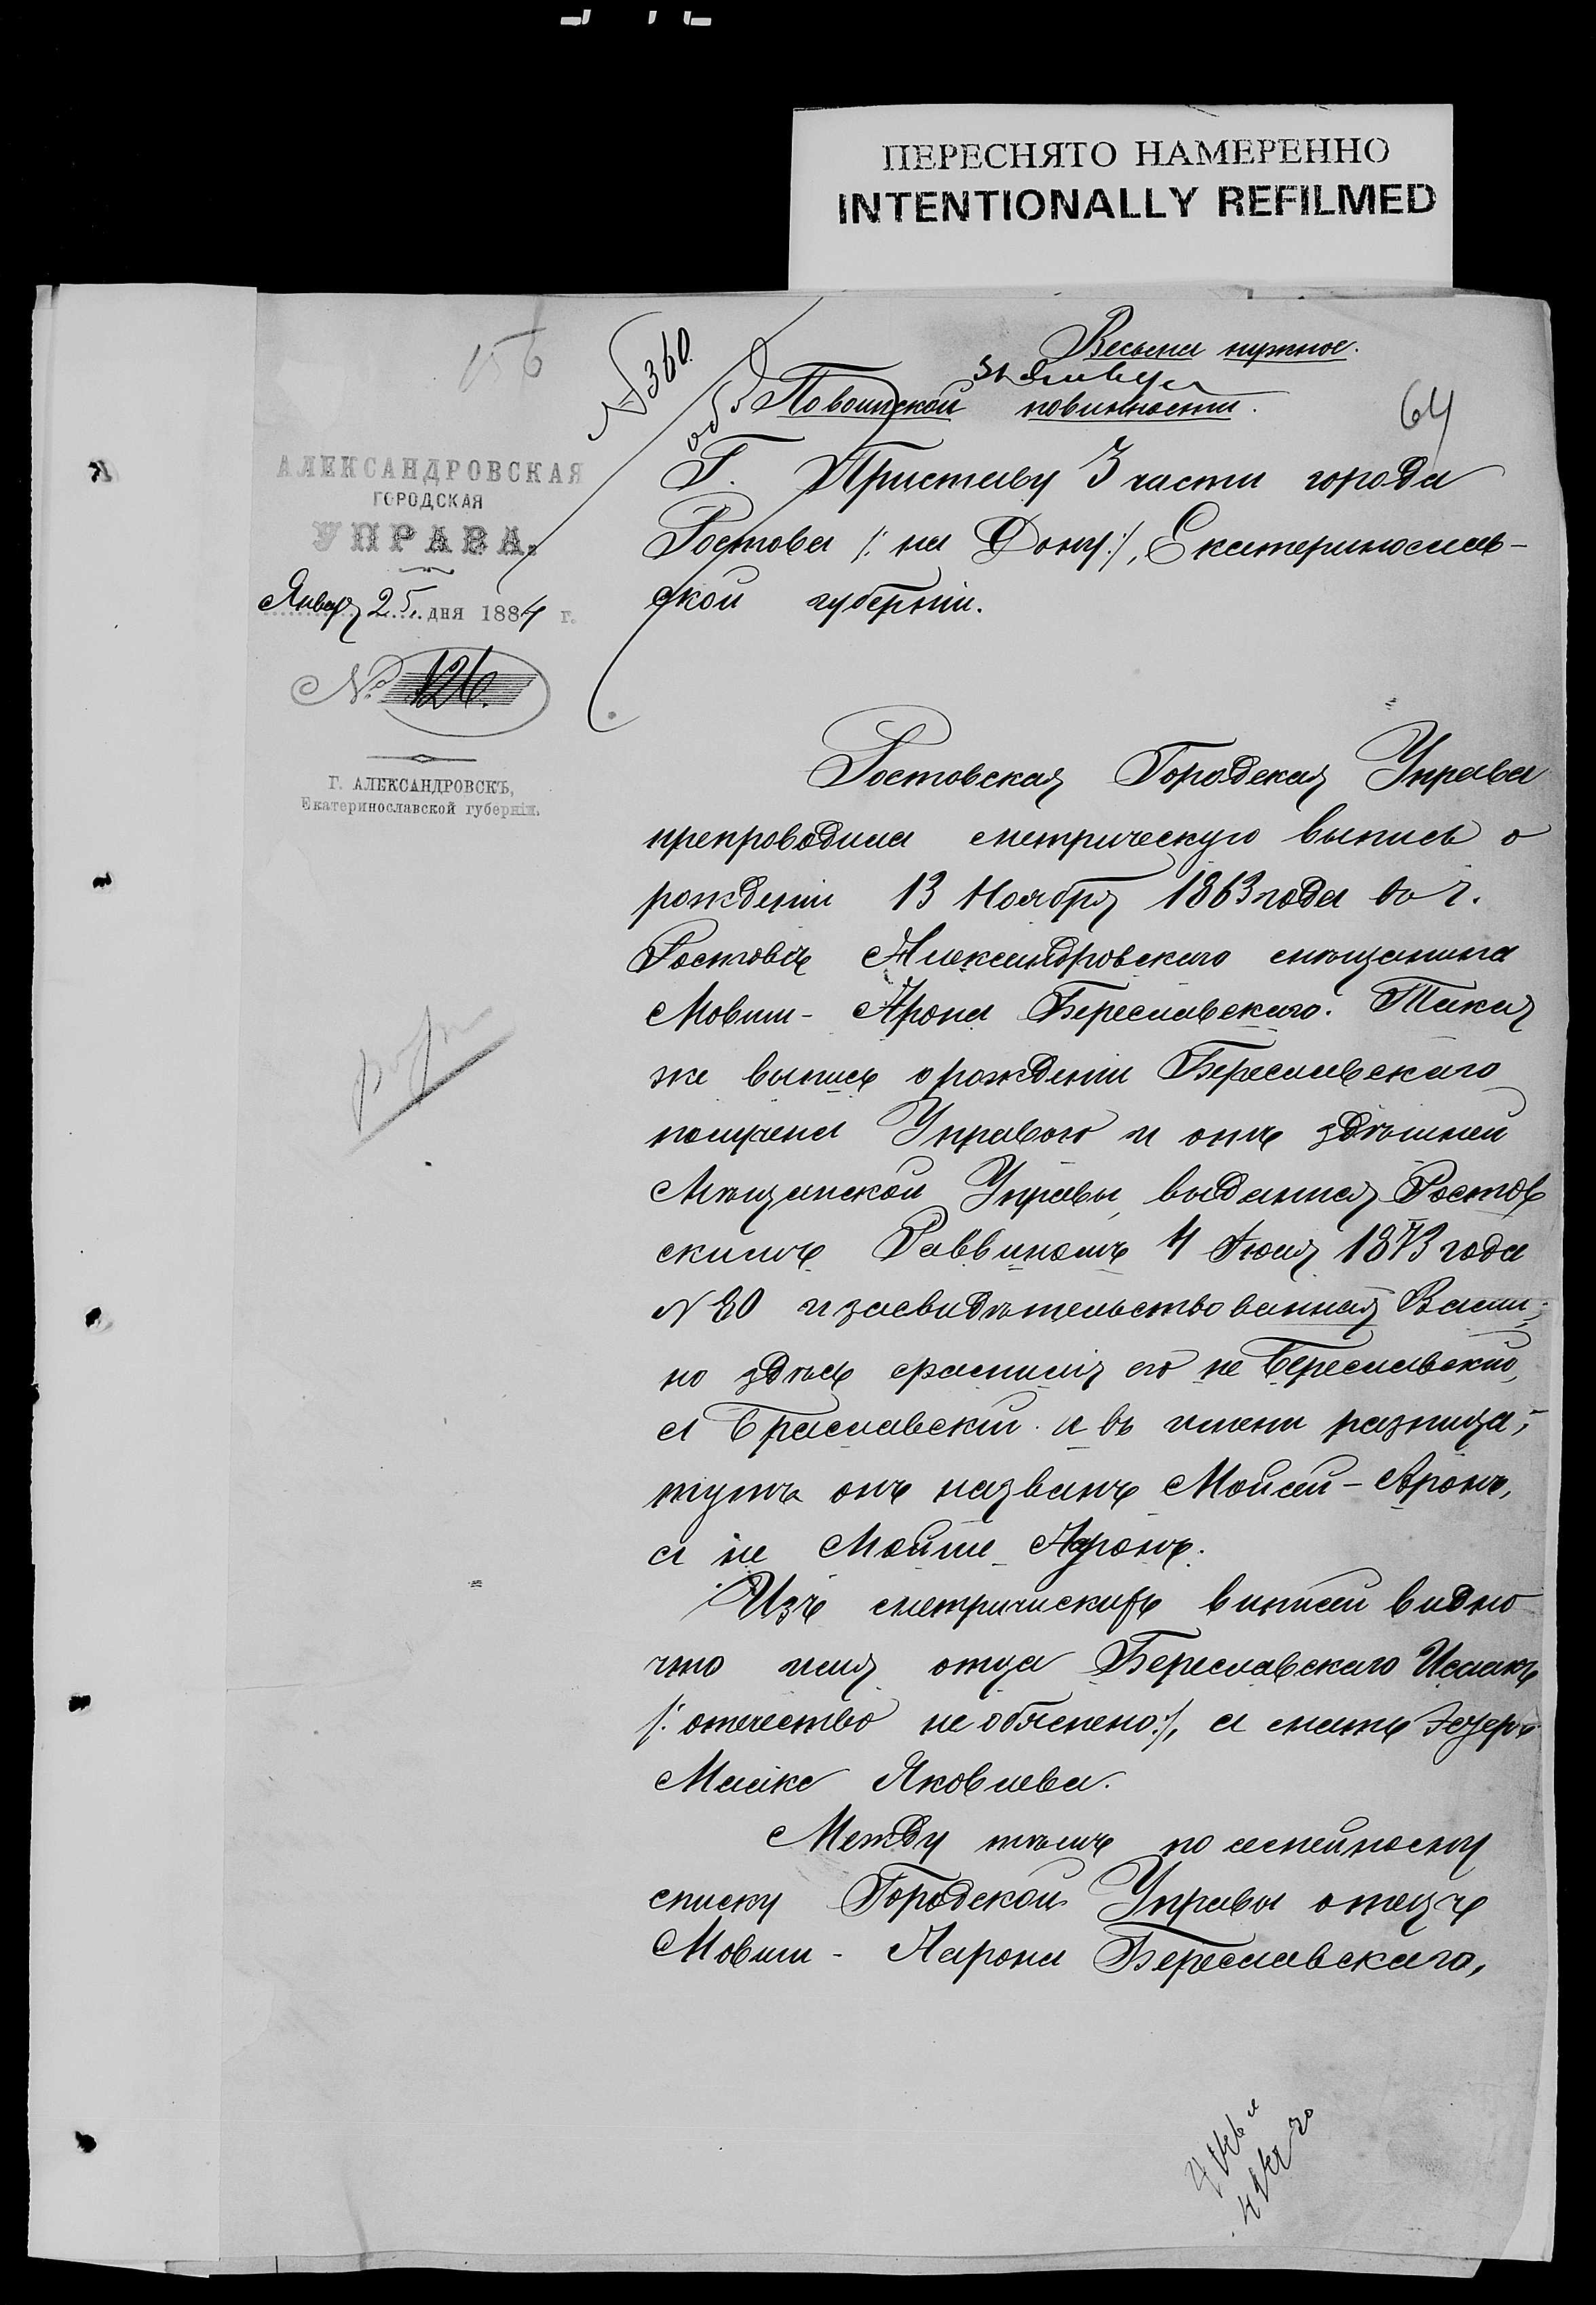 ПЕРЕСНЯТО НАМЕРЕННО
INTENTIONALLY REFILMED
156
№ 360
Весьма нужное.
31 Января
По воинской повинности.
64
АЛЕКСАНДРОВСКАЯ
ГОРОДСКАЯ
УПРАВА.
Января 25 дня 1884 г.
№ 126.
Г. АЛЕКСАНДРОВСКЪ,
Екатеринославской губерніи.
Г. Приставу 3 части города
Ростова /: на Дону :/, Екатеринослав-
ской губерніи.
Ростовская Городская Управа
препроводила метрическую выпись о
рожденіи 13 Ноября 1863 года во г.
Ростовѣ Александровскаго мѣщанина
Мовши - Арона Береславскаго. Такая
же выпись о рожденіи Береславскаго
получена Управою и отъ здѣшней
Мѣщанской Управы, выданная Ростов
скимъ Раввиномъ 4 Іюля 1873 года
№ 80 и засвидѣтельствованная Вами;
но здѣсь фамилія его не Береславскій,
а Браславскій и въ имени разница;
тутъ онъ названъ Мойсей - Аронъ,
а не Мойше Аронъ.
Изъ метрическихъ выписей видно
что имя отца Береславскаго Исаакъ
/: отчество не обяснено :/, а мать
Яковлева.
Между тѣмъ по семейному
списку Городской Управы отецъ
Мовши - Аарона Береславскаго,